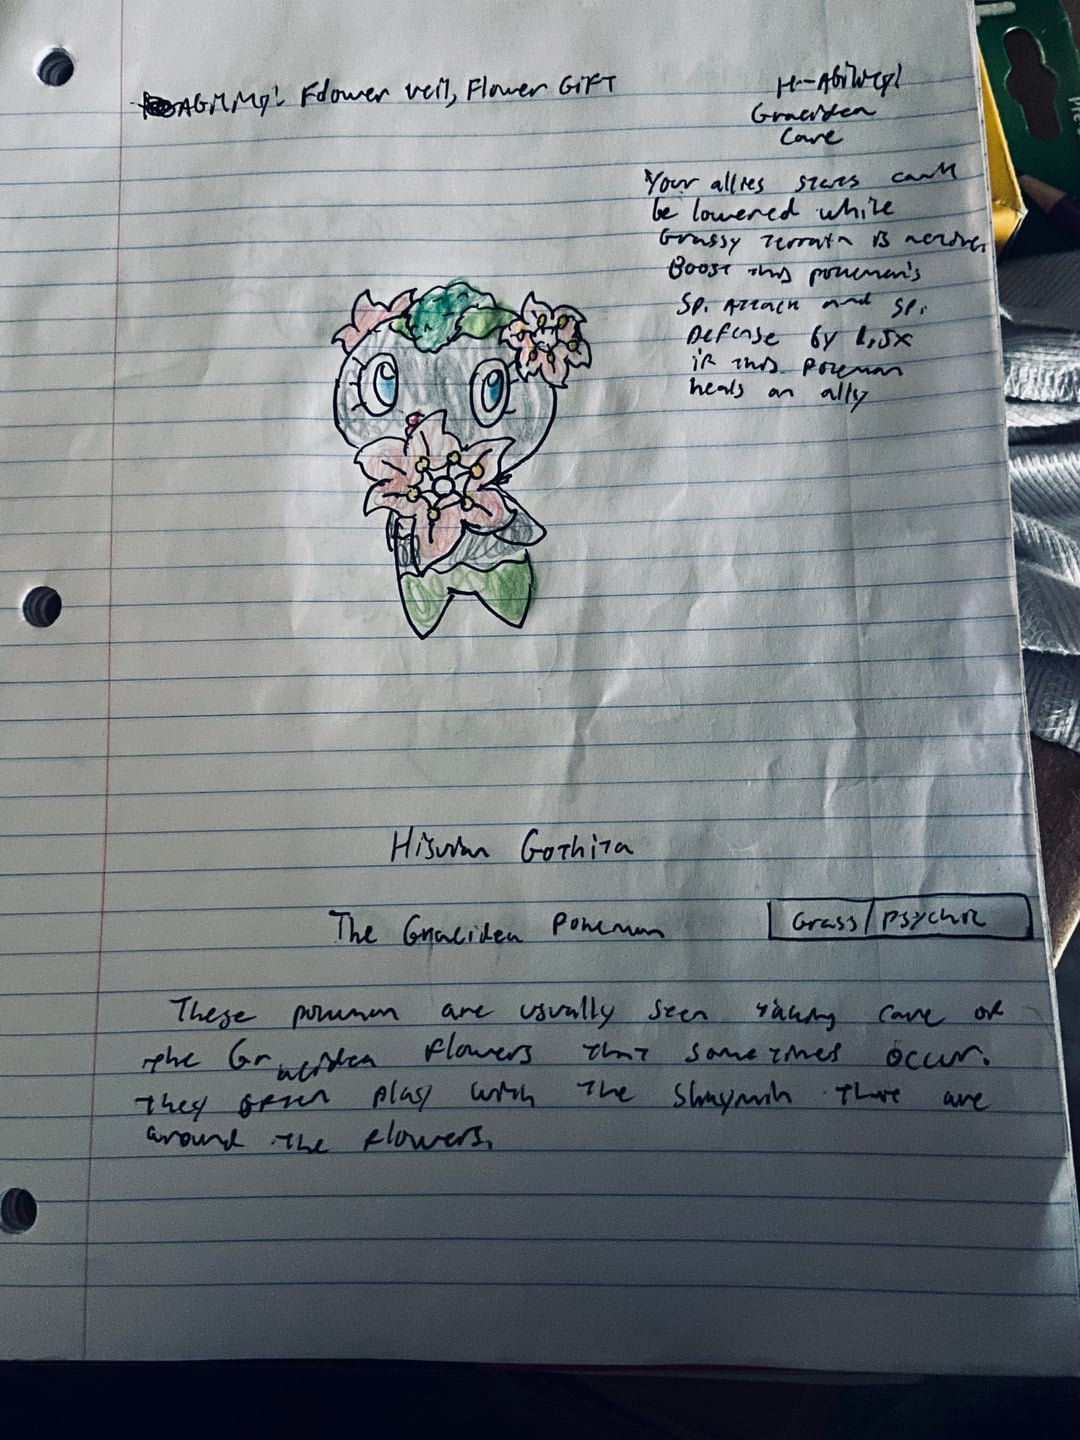 Ability: Flower veil, Flower Gift
H-Ability:
Gracidea
Care
Your allies stats can't
be lowered while
Grassy terrain is active.
Boost this pokemon's
Sp. Attack and Sp.
Defense by 1.5x
if this Pokemon
heals an ally
Hisuian Gothita
The Gracidea Pokemon
Grass/psychic
These pokemon are usually seen taking care of
the Gracidea flowers that sometimes occur.
They often play with the Shaymin that are
around the flowers.